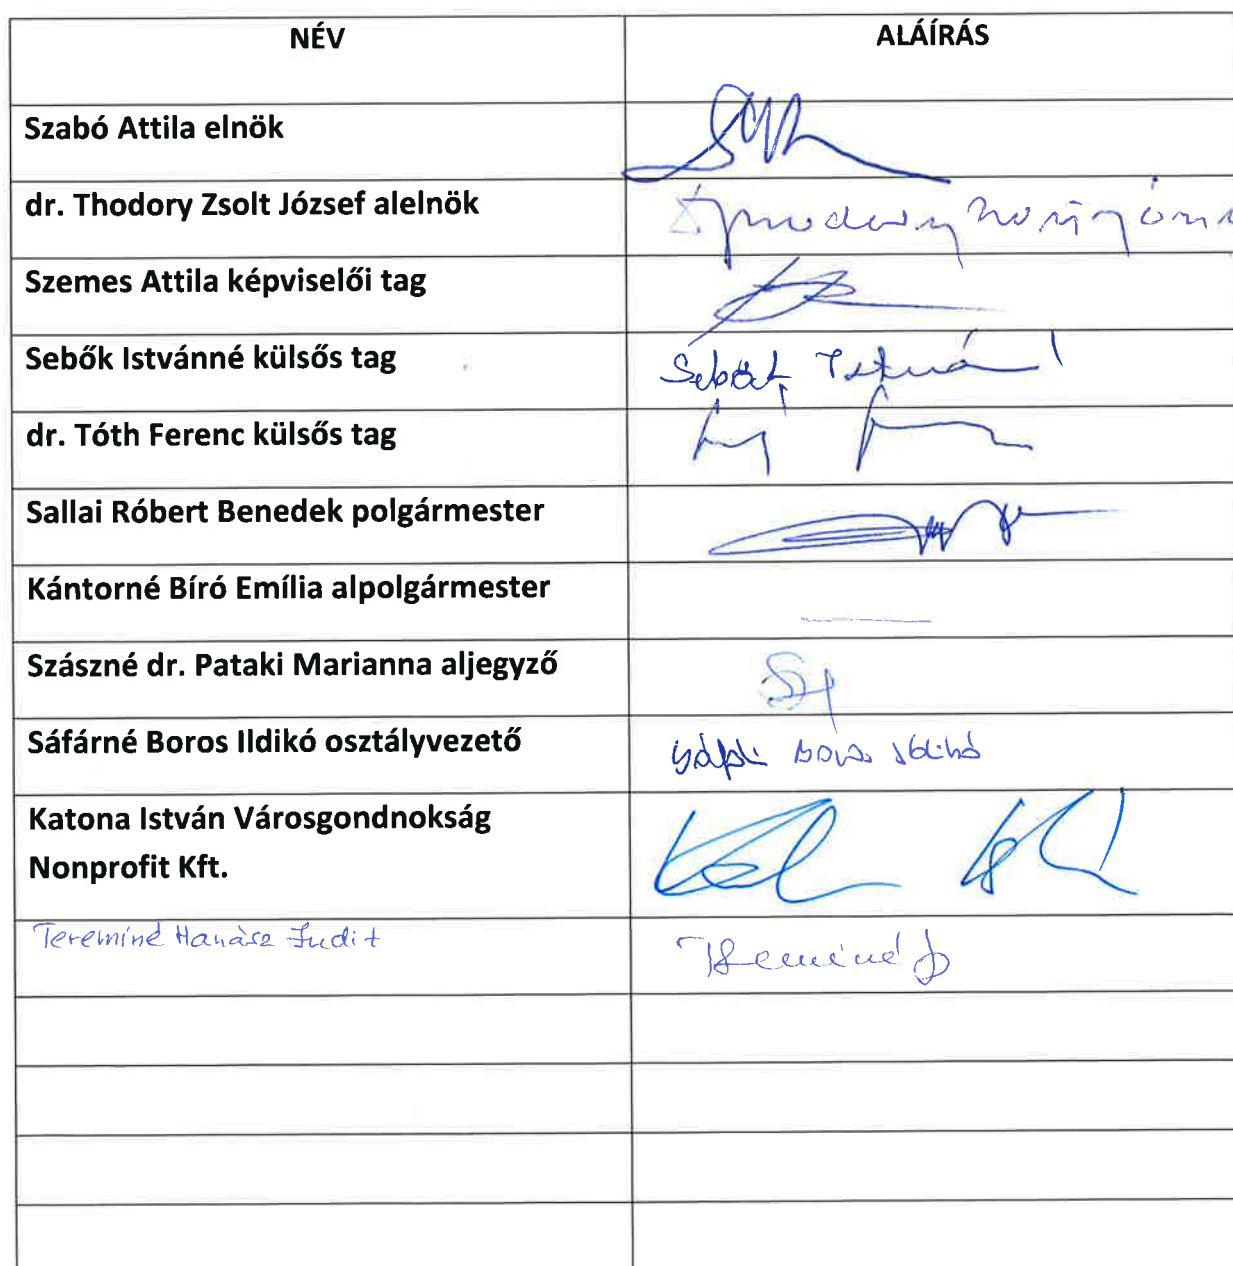 NÉV
ALÁÍRÁS
Szabó Attila elnök
dr. Thodory Zsolt József alelnök
Szemes Attila képviselői tag
Sebők Istvánné külsős tag
Sebők
dr. Tóth Ferenc külsős tag
Sallai Róbert Benedek polgármester
Kántorné Bíró Emília alpolgármester
Szászné dr. Pataki Marianna aljegyző
Sáfárné Boros Ildikó osztályvezető
Boros Ildikó
Katona István Városgondnokság
Nonprofit Kft.
Tereminé Hanász Judit
Tereminé J